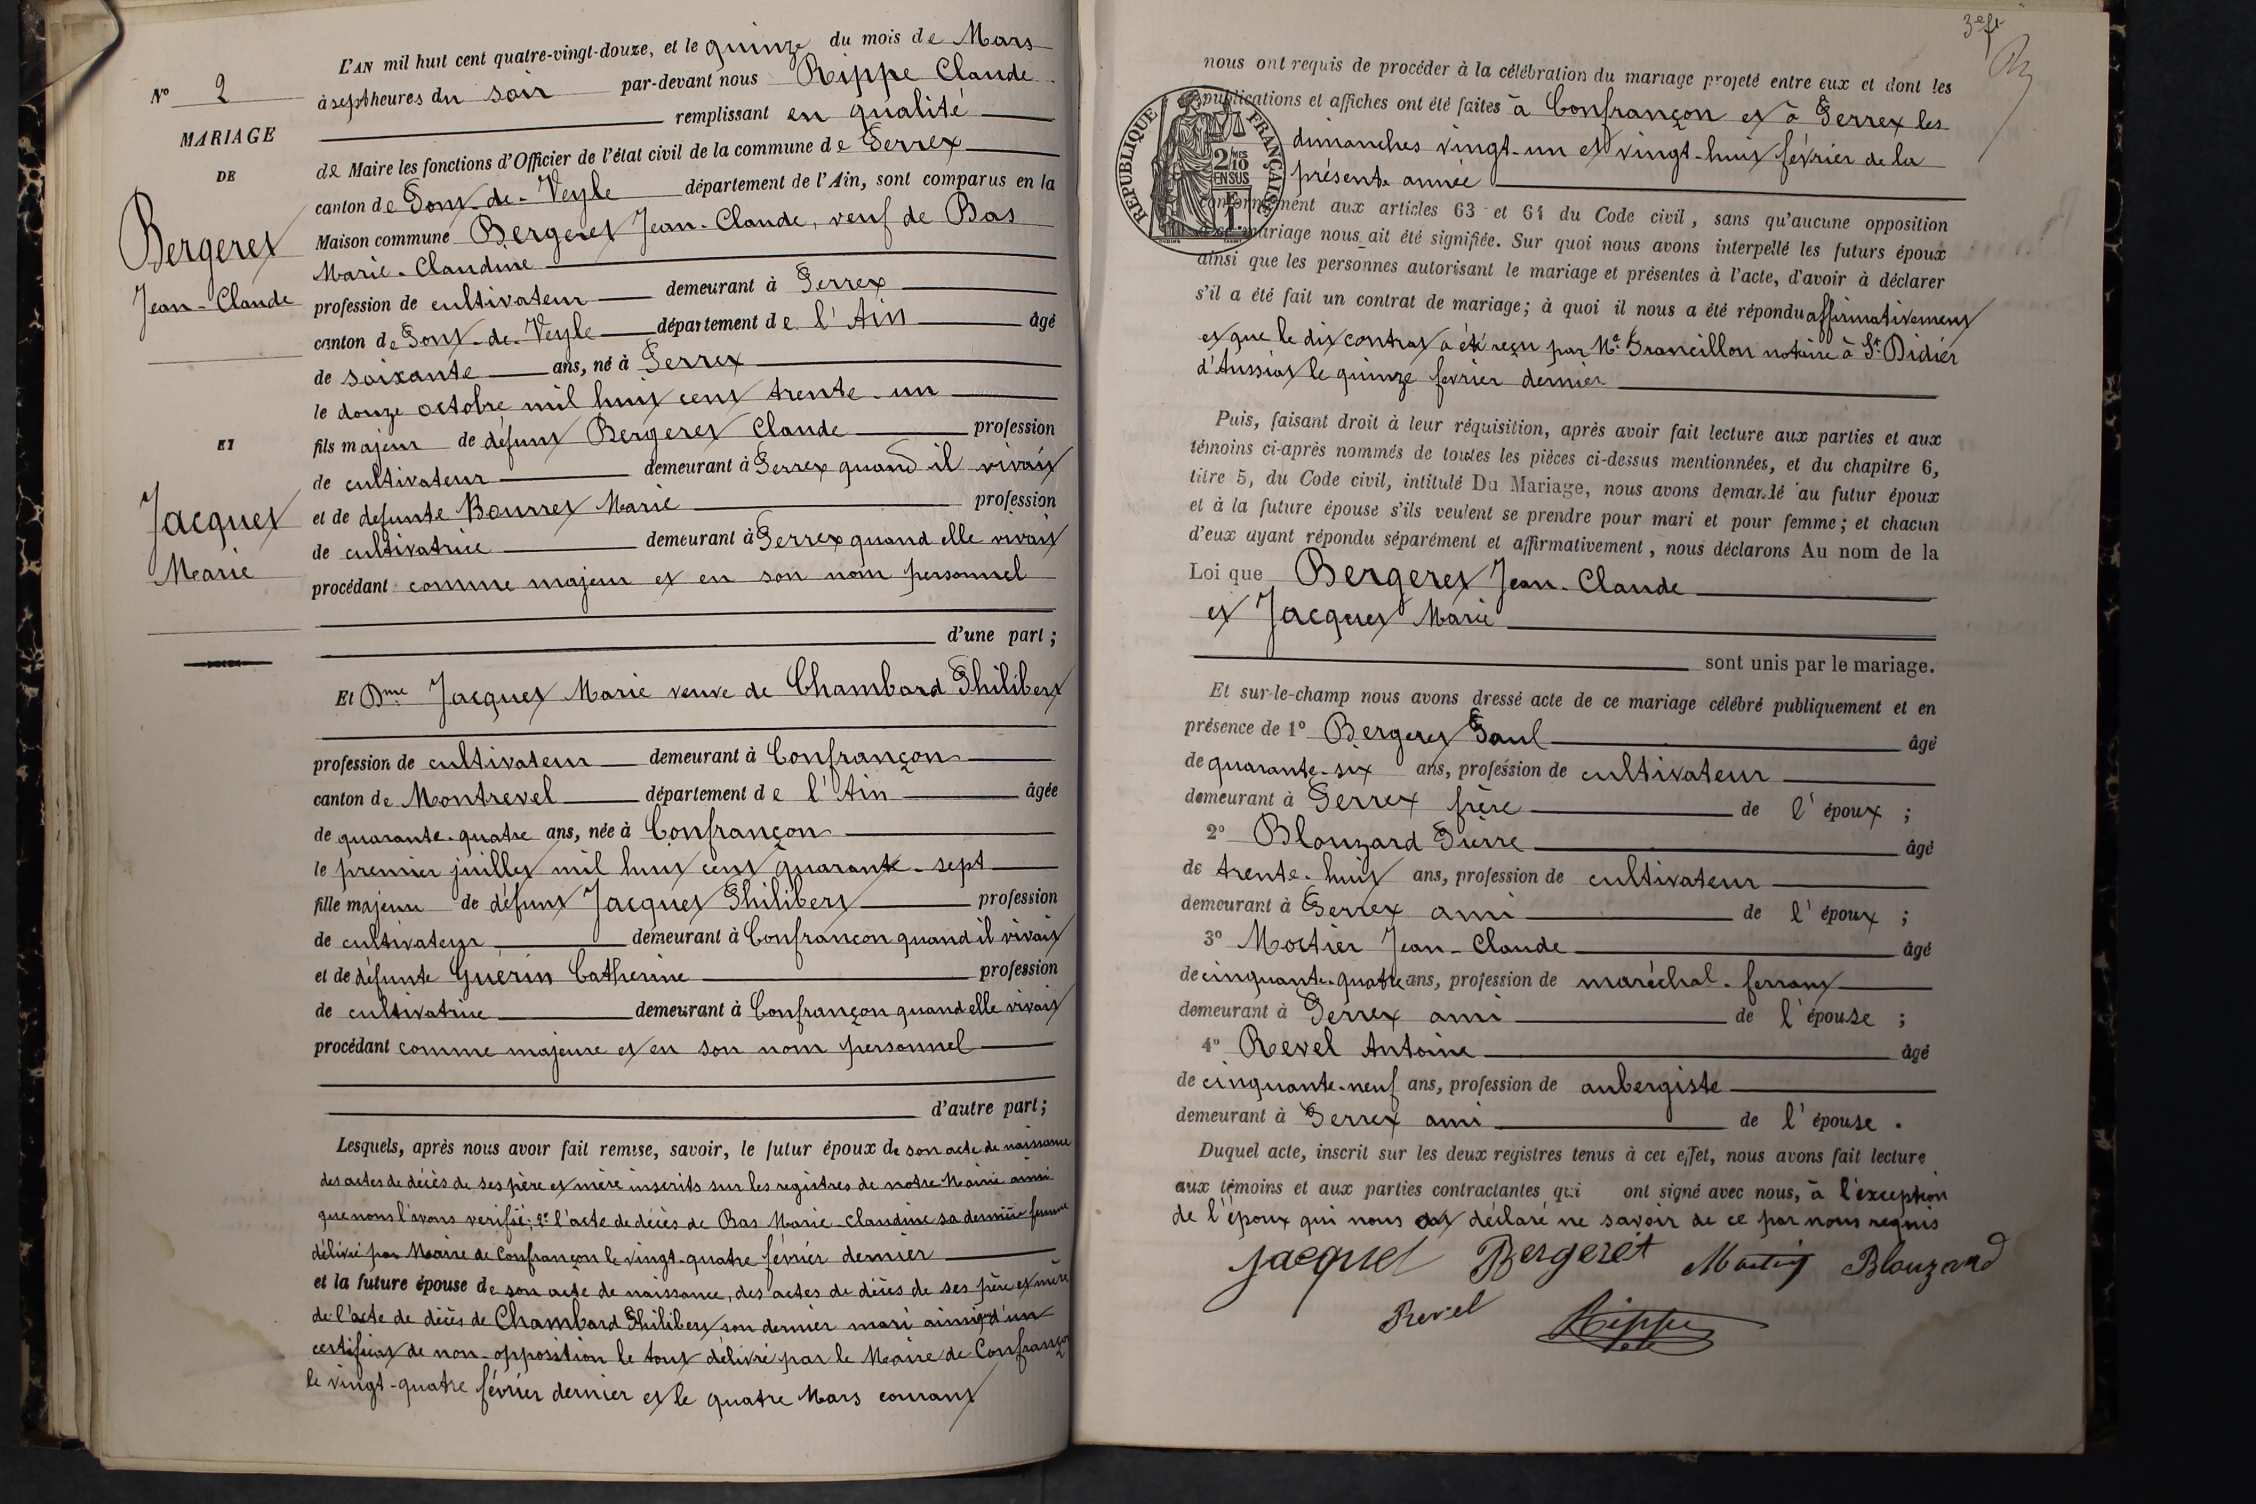 L'AN mil huit cent quatre-vingt-douze, et le quinze du mois de Mars
à sept heures du soir par-devant nous Rippe Claude
remplissant en qualité
de Maire les fonctions d'Officier de l'état civil de la commune de Perrex
canton de Pont-de-Veyle département de l'Ain, sont comparus en la
Maison commune Bergeret Jean-Claude, veuf de Bas
Marie-Claudine
profession de cultivateur demeurant à Perrex
canton de Pont-de-Veyle département de l'Ain âgé
de soixante ans, né à Perrex
le douze octobre mil huit cent trente-un
fils majeur de défunt Bergeret Claude profession
de cultivateur demeurant à Perrex quand il vivait
et de défunte Bourret Marie profession
de cultivatrice demeurant à Perrex quand elle vivait
procédant comme majeur et en son nom personnel
d'une part;
Et Dme Jacquet Marie veuve de Chambard Philibert
profession de cultivateur demeurant à Confrançon
canton de Montrevel département de l'Ain âgée
de quarante-quatre ans, née à Confrançon
le premier juillet mil huit cent quarante-sept
fille majeure de défunt Jacquet Philibert profession
de cultivateur demeurant à Confrancon quand il vivait
et de défunte Guérin Catherine profession
de cultivatrice demeurant à Confrançon quand elle vivait
procédant comme majeure et en son nom personnel
d'autre part;
Lesquels, après nous avoir fait remise, savoir, le futur époux de son acte de naissance
des actes de décès de ses père et mère inscrits sur les registres de notre Mairie ainsi
que nous l'avons verifié; 2° l'acte de décès de Bas Marie-Claudine sa dernière femme
délivré par Maire de Confrançon le vingt-quatre février dernier
et la future épouse de son acte de naissance, des actes de décès de ses père et mère
de l'acte de décès de Chambard Philibert son dernier mari ainsi qu'd'un
certificat de non-opposition le tout délivré par le Maire de Confrançon
le vingt-quatre février dernier et le quatre Mars courant
N° 2
MARIAGE
DE
Bergeret
Jean-Claude
ET
Jacquet
Marie
3e ft
nous ont requis de procéder à la célébration du mariage projeté entre eux et dont les
publications et affiches ont été faites à Confrançon et à Perrex les
dimanches vingt-un et vingt-huit février de la
présente année
conformément aux articles 63 et 64 du Code civil, sans qu'aucune opposition
à ce mariage nous ait été signifiée. Sur quoi nous avons interpellé les futurs époux
ainsi que les personnes autorisant le mariage et présentes à l'acte, d'avoir à déclarer
s'il a été fait un contrat de mariage; à quoi il nous a été répondu affirmativement
et que le dit contrat a été reçu par Me Francillon notaire à St Didier
d'Aussiat le quinze fevrier dernier
RÉPUBLIQUE FRANÇAISE
2 mes
10
EN SUS
Puis, faisant droit à leur réquisition, après avoir fait lecture aux parties et aux
témoins ci-après nommés de toutes les pièces ci-dessus mentionnées, et du chapitre 6,
titre 5, du Code civil, intitulé Du Mariage, nous avons demandé au futur époux
et à la future épouse s'ils veulent se prendre pour mari et pour femme; et chacun
d'eux ayant répondu séparément et affirmativement, nous déclarons Au nom de la
Loi que Bergeret Jean-Claude
et Jacquet Marie
sont unis par le mariage.
Et sur-le-champ nous avons dressé acte de ce mariage célébré publiquement et en
présence de 1° Bergeret Paul âgé
de quarante-six ans, profession de cultivateur
demeurant à Perrex frère de l'époux;
2° Blouzard Pierre âgé
de trente-huit ans, profession de cultivateur
demeurant à Perrex ami de l'époux;
3° Moctier Jean-Claude âgé
de cinquante-quatre ans, profession de maréchal-ferrant
demeurant à Perrex ami de l'épouse;
4° Revel Antoine âgé
de cinquante-neuf ans, profession de aubergiste
demeurant à Perrex ami de l'épouse.
Duquel acte, inscrit sur les deux registres tenus à cet effet, nous avons fait lecture
aux témoins et aux parties contractantes qui ont signé avec nous, à l'exception
de l'époux qui nous déclaré ne savoir de ce par nous requis
Jacquet Bergeret Blouzard
Revel Rippe